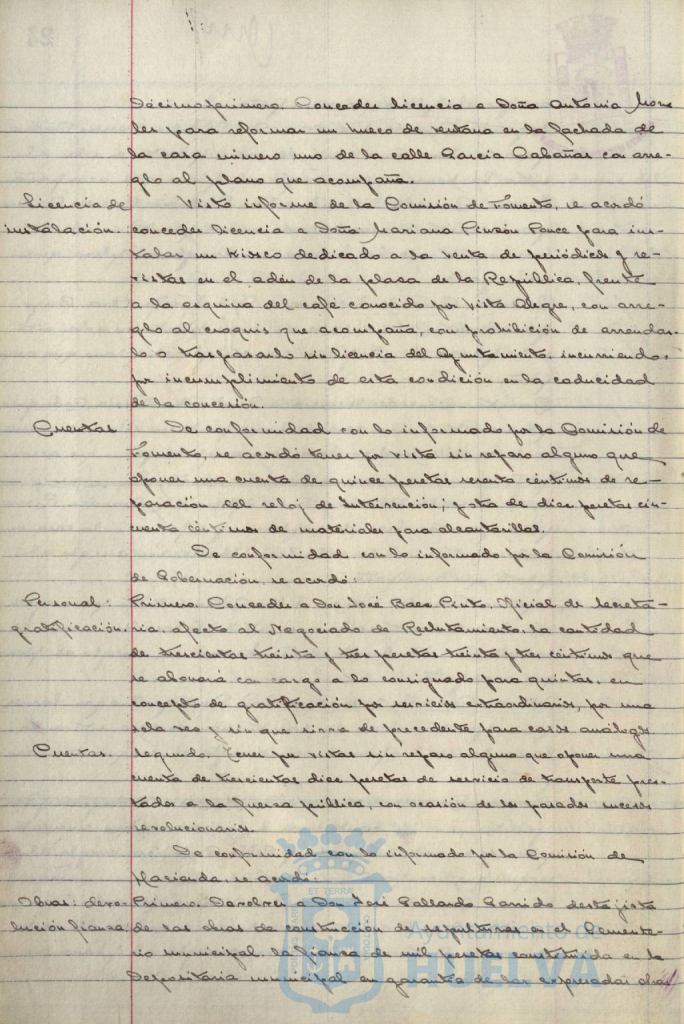 Décimo primero. Conceder licencia a Doña Antonia Mora-
les para reformar un hueco de ventana en la fachada de
la casa número uno de la calle García Cabañas con arre-
glo al plano que acompaña.
Licencia de
instalación.
Visto informe de la Comisión de Fomento, se acordó
conceder licencia a Doña Mariana Pinzón Ponce para ins-
talar un kiosco dedicado a la venta de periódicos y re-
vistas en el andén de la plaza de la República, frente
a la esquina del café conocido por Vista Alegre, con arre-
glo al croquis que acompaña, con prohibición de arrendar-
lo o traspasarlo sin licencia del Ayuntamiento, incurriendo,
por incumplimiento de esta condición en la caducidad
de la concesión.
Cuentas
De conformidad con lo informado por la Comisión de
Fomento, se acordó tener por vista sin reparo alguno que
oponer una cuenta de quince pesetas sesenta céntimos de re-
paración del reloj de Intervención; y otra de diez pesetas cin-
cuenta céntimos de materiales para alcantarillas.
De conformidad con lo informado por la Comisión
de Gobernación, se acordó:
Personal:
gratificación.
Primero. Conceder a Don José Baez Pinto, Oficial de Secreta-
ria, afecto al Negociado de Reclutamiento, la cantidad
de trescientas treinta y tres pesetas treinta y tres céntimos que
se abonará con cargo a lo consignado para quintas, en
concepto de gratificación por servicios extraordinarios, por una
sola vez y sin que sirva de precedente para casos análogos.
Cuentas.
Segundo. Tener por vistas sin reparo alguno que oponer una
cuenta de trescientas diez pesetas de servicio de transporte pres-
tados a la fuerza pública, con ocasión de los pasados sucesos
revolucionarios.
De conformidad con lo informado por la Comisión de
Hacienda, se acordó:
Obras: devo-
lución fianza.
Primero. Devolver a Don José Gallardo Garrido destajista
de las obras de construcción de sepulturas en el Cemente-
rio municipal, la fianza de mil pesetas constituida en la
Depositaria municipal en garantía de las expresadas obras
ET TERRA
Ayuntamiento de
HUELVA